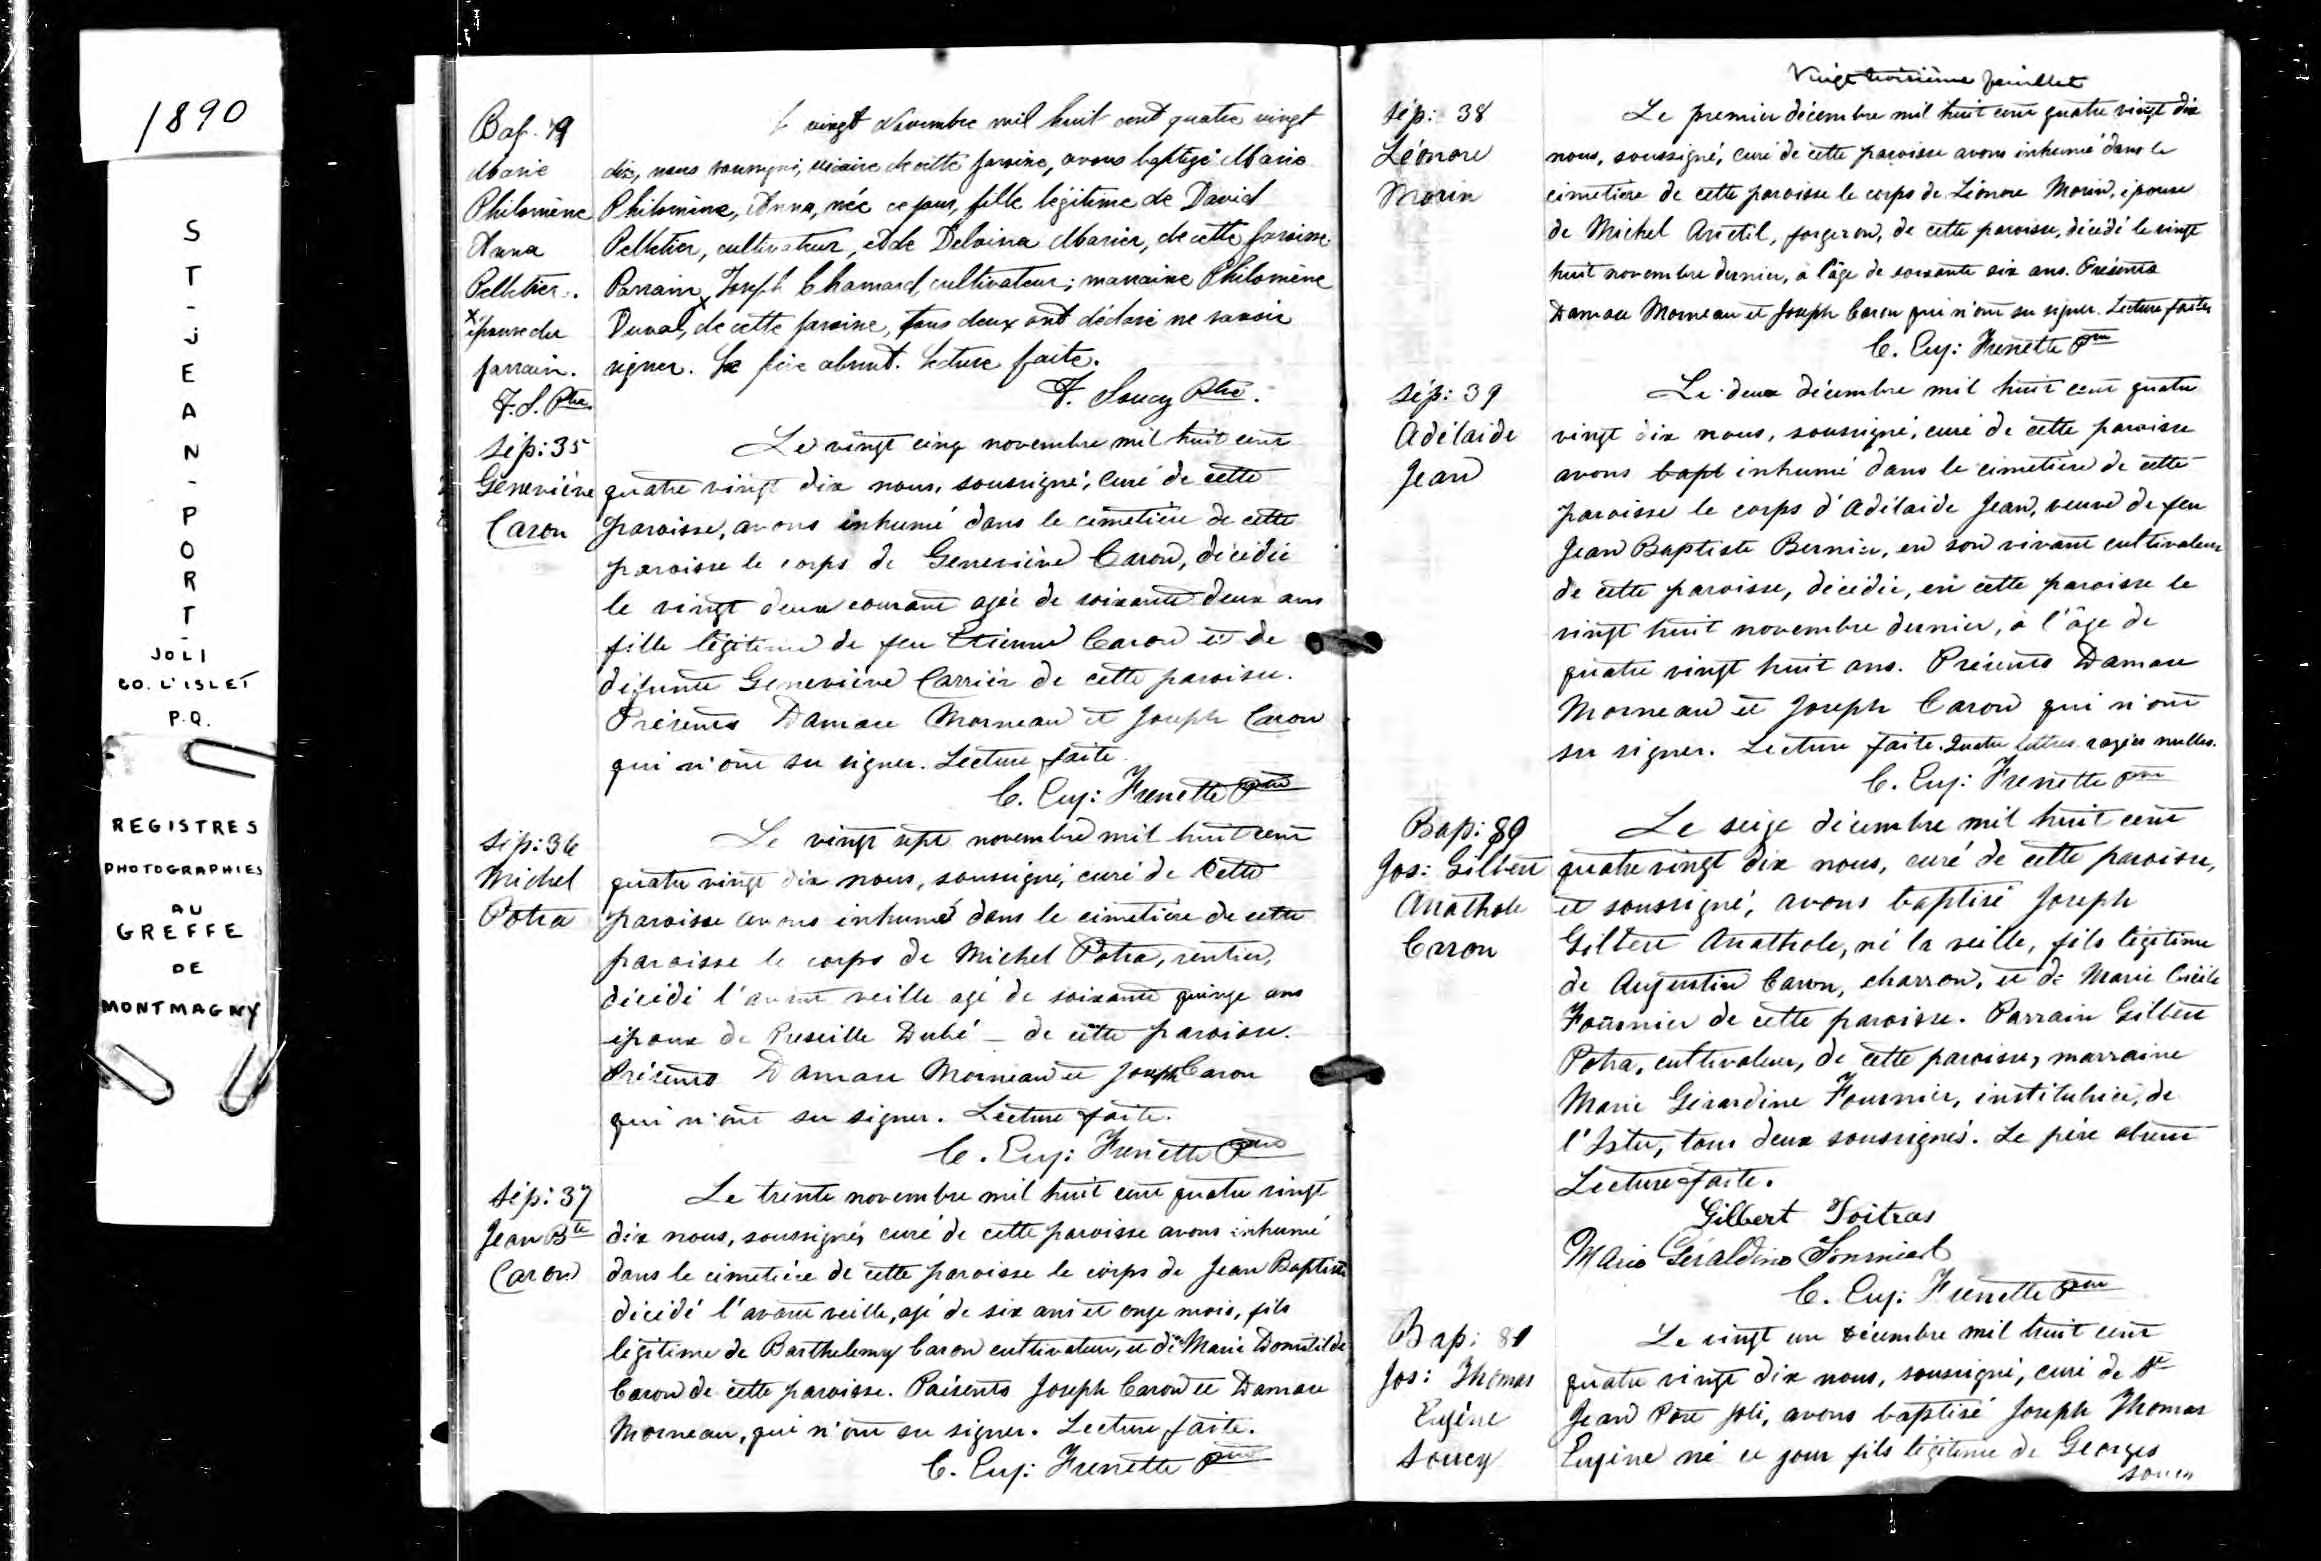 1890
ST-JEAN-PORT-
JOLI
CO. L'ISLET
P.Q.
REGISTRES
PHOTOGRAPHIES
AU
GREFFE
DE
MONTMAGNY
Bap. 79
Marie
Philomène
Anna
Pelletier.
x épouse du
parrain.
F. S. Ptre
vingt Novembre mil huit cent quatre vingt
dix, nous soussigné, vicaire de cette paroisse, avons baptisé Marie
Philomène, Anna, née ce jour, fille légitime de David
Pelletier, cultivateur, et de Delvina Marier, de cette paroisse.
Parrain, Joseph Chamard, cultivateur; marraine Philomène
Duval, x de cette paroisse, tous deux ont déclaré ne savoir
signer. Le père absent. Lecture faite.
F. Soucy Ptre.
Sép: 35
Geneviève
Caron
Le vingt cinq novembre mil huit cent
quatre vingt dix nous, soussigné, curé de cette
paroisse, avons inhumé dans le cimetière de cette
paroisse le corps de Geneviève Caron, décédée
le vingt deux courant agée de soixante deux ans
fille légitime de feu Etienne Caron et de
défunte Geneviève Carrier de cette paroisse.
Présents Damase Morneau et Joseph Caron
qui n'ont su signer. Lecture faite.
C. Eug: Frenette Ptre
Sép: 36
Michel
Potra
Le vingt sept novembre mil huit cent
quatre vingt dix nous, soussigné, curé de cette
paroisse avons inhumé dans le cimetière de cette
paroisse le corps de Michel Potra, rentier,
décédé l'avant veille agé de soixante quinze ans
époux de Preseille Dubé – de cette paroisse.
Présents Damase Morneau et Joseph Caron
qui n'ont su signer. Lecture faite.
C. Eug: Frenette Ptre
Sép: 37
Jean Bte
Caron
Le trente novembre mil huit cent quatre vingt
dix nous, soussigné, curé de cette paroisse avons inhumé
dans le cimetière de cette paroisse le corps de Jean Baptiste
décédé l'avant veille, agé de six ans et onze mois, fils
légitime de Barthelemy Caron cultivateur, et de Marie Domitilde
Caron de cette paroisse. Présents Joseph Caron et Damase
Morneau, qui n'ont su signer. Lecture faite.
C. Eug: Frenette Ptre
Vingt troisième feuillet
Sép: 38
Léonore
Morin
Le premier décembre mil huit cent quatre vingt dix
nous, soussigné, curé de cette paroisse avons inhumé dans le
cimetière de cette paroisse le corps de Léonore Morin, épouse
de Michel Anctil, forgeron, de cette paroisse, décédé le vingt
huit novembre dernier, à l'âge de soixante six ans. Présents
Damase Morneau et Joseph Caron qui n'ont su signer. Lecture faite
C. Eug: Frenette Ptre
Sép: 39
Adélaide
Jean
Le deux décembre mil huit cent quatre
vingt dix nous, soussigné, curé de cette paroisse
avons bapt inhumé dans le cimetière de cette
paroisse le corps d'Adélaide Jean, veuve de feu
Jean Baptiste Bernier, en son vivant cultivateur
de cette paroisse, décédée, en cette paroisse le
vingt huit novembre dernier, à l'âge de
quatre vingt huit ans. Présents Damase
Morneau et Joseph Caron qui n'ont
su signer. Lecture faite. Quatre lettres rayées nulles.
C. Eug: Frenette Ptre
Bap: 80
Jos: Gilbert
Anathole
Caron
Le seize décembre mil huit cent
quatre vingt dix nous, curé de cette paroisse,
et soussigné, avons baptisé Joseph
Gilbert Anathole, né la veille, fils légitime
de Augustin Caron, charron, et de Marie Cécile
Fournier de cette paroisse. Parrain Gilbert
Potra, cultivateur, de cette paroisse, marraine
Marie Gérardine Fournier, institutrice, de
l'Islet, tous deux soussignés. Le père absent
Lecture faite.
Gilbert Poitras
Marie Géraldine Fournier
C. Eug: Frenette Ptre
Bap: 81
Jos: Thomas
Eugène
Soucy
Le vingt un décembre mil huit cent
quatre vingt dix nous, soussigné, curé de St
Jean Port Joli, avons baptisé Joseph Thomas
Eugène né ce jour fils légitime de Georges
Soucy